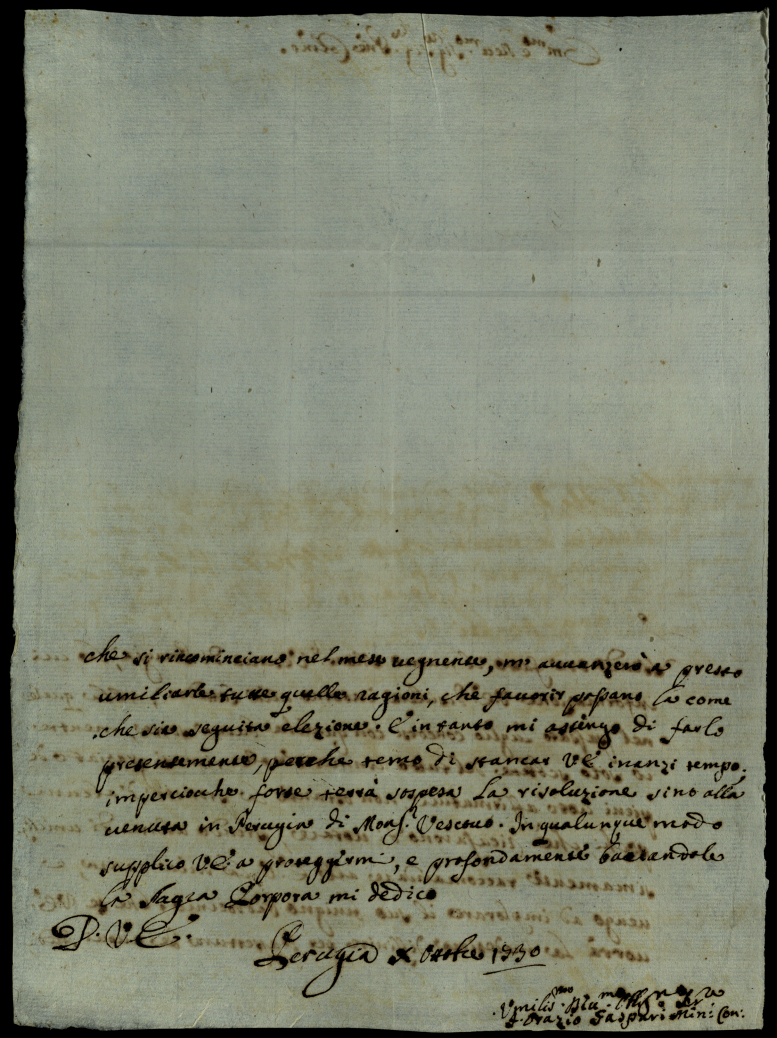 che si rincominciano nel mese vegnente, m'avanzerò a presto
umiliarle tutte quelle ragioni, che favorir possano la come
che sia seguita elezione. E in tanto mi astengo di farlo
presentemente, perche temo di stancar VE inanzi tempo,
imperciocche forse terrà sospesa la risoluzione sino alla
venuta in Perugia di Mons.r Vescovo. In qualunque modo
supplico VE a proteggermi, e profondamente baciandole
la Sagra Porpora mi dedico
D. VE.
Perugia X Ottbre 1730
Umilis.mo Div.mo Obl.mo Ser.e
F. Orazio Gaspari Min: Con: